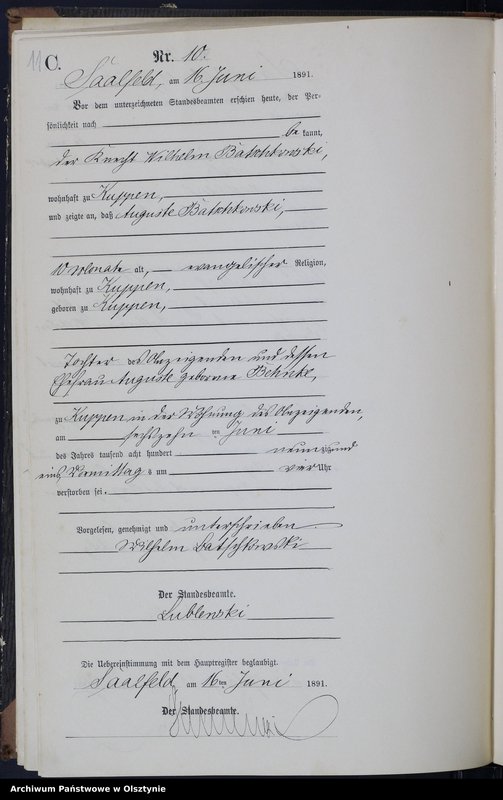 11 C.
Nr. 10.
Saalfeld, am 16. Juni 1891.
Vor dem unterzeichneten Standesbeamten erschien heute, der Per-
sönlichkeit nach
be kannt,
der Knecht Wilhelm Batschkowski,
wohnhaft zu Kuppen,
und zeigte an, daß Auguste Batschkowski,
10 Monate alt, evangelischer Religion,
wohnhaft zu Kuppen,
geboren zu Kuppen,
Tochter des Anzeigenden und dessen
Ehefrau Auguste geborene
zu Kuppen in der Wohnung des Anzeigenden,
am sechszehn ten Juni
des Jahres tausend acht hundert neunzig und
eins, Vormittags um vier Uhr
verstorben sei.
Vorgelesen, genehmigt und unterschrieben
Wilhelm Batschkowski
Der Standesbeamte.
Lublenski
Die Uebereinstimmung mit dem Hauptregister beglaubigt.
Saalfeld am 16ten Juni 1891.
Der Standesbeamte.
Archiwum Państwowe w Olsztynie